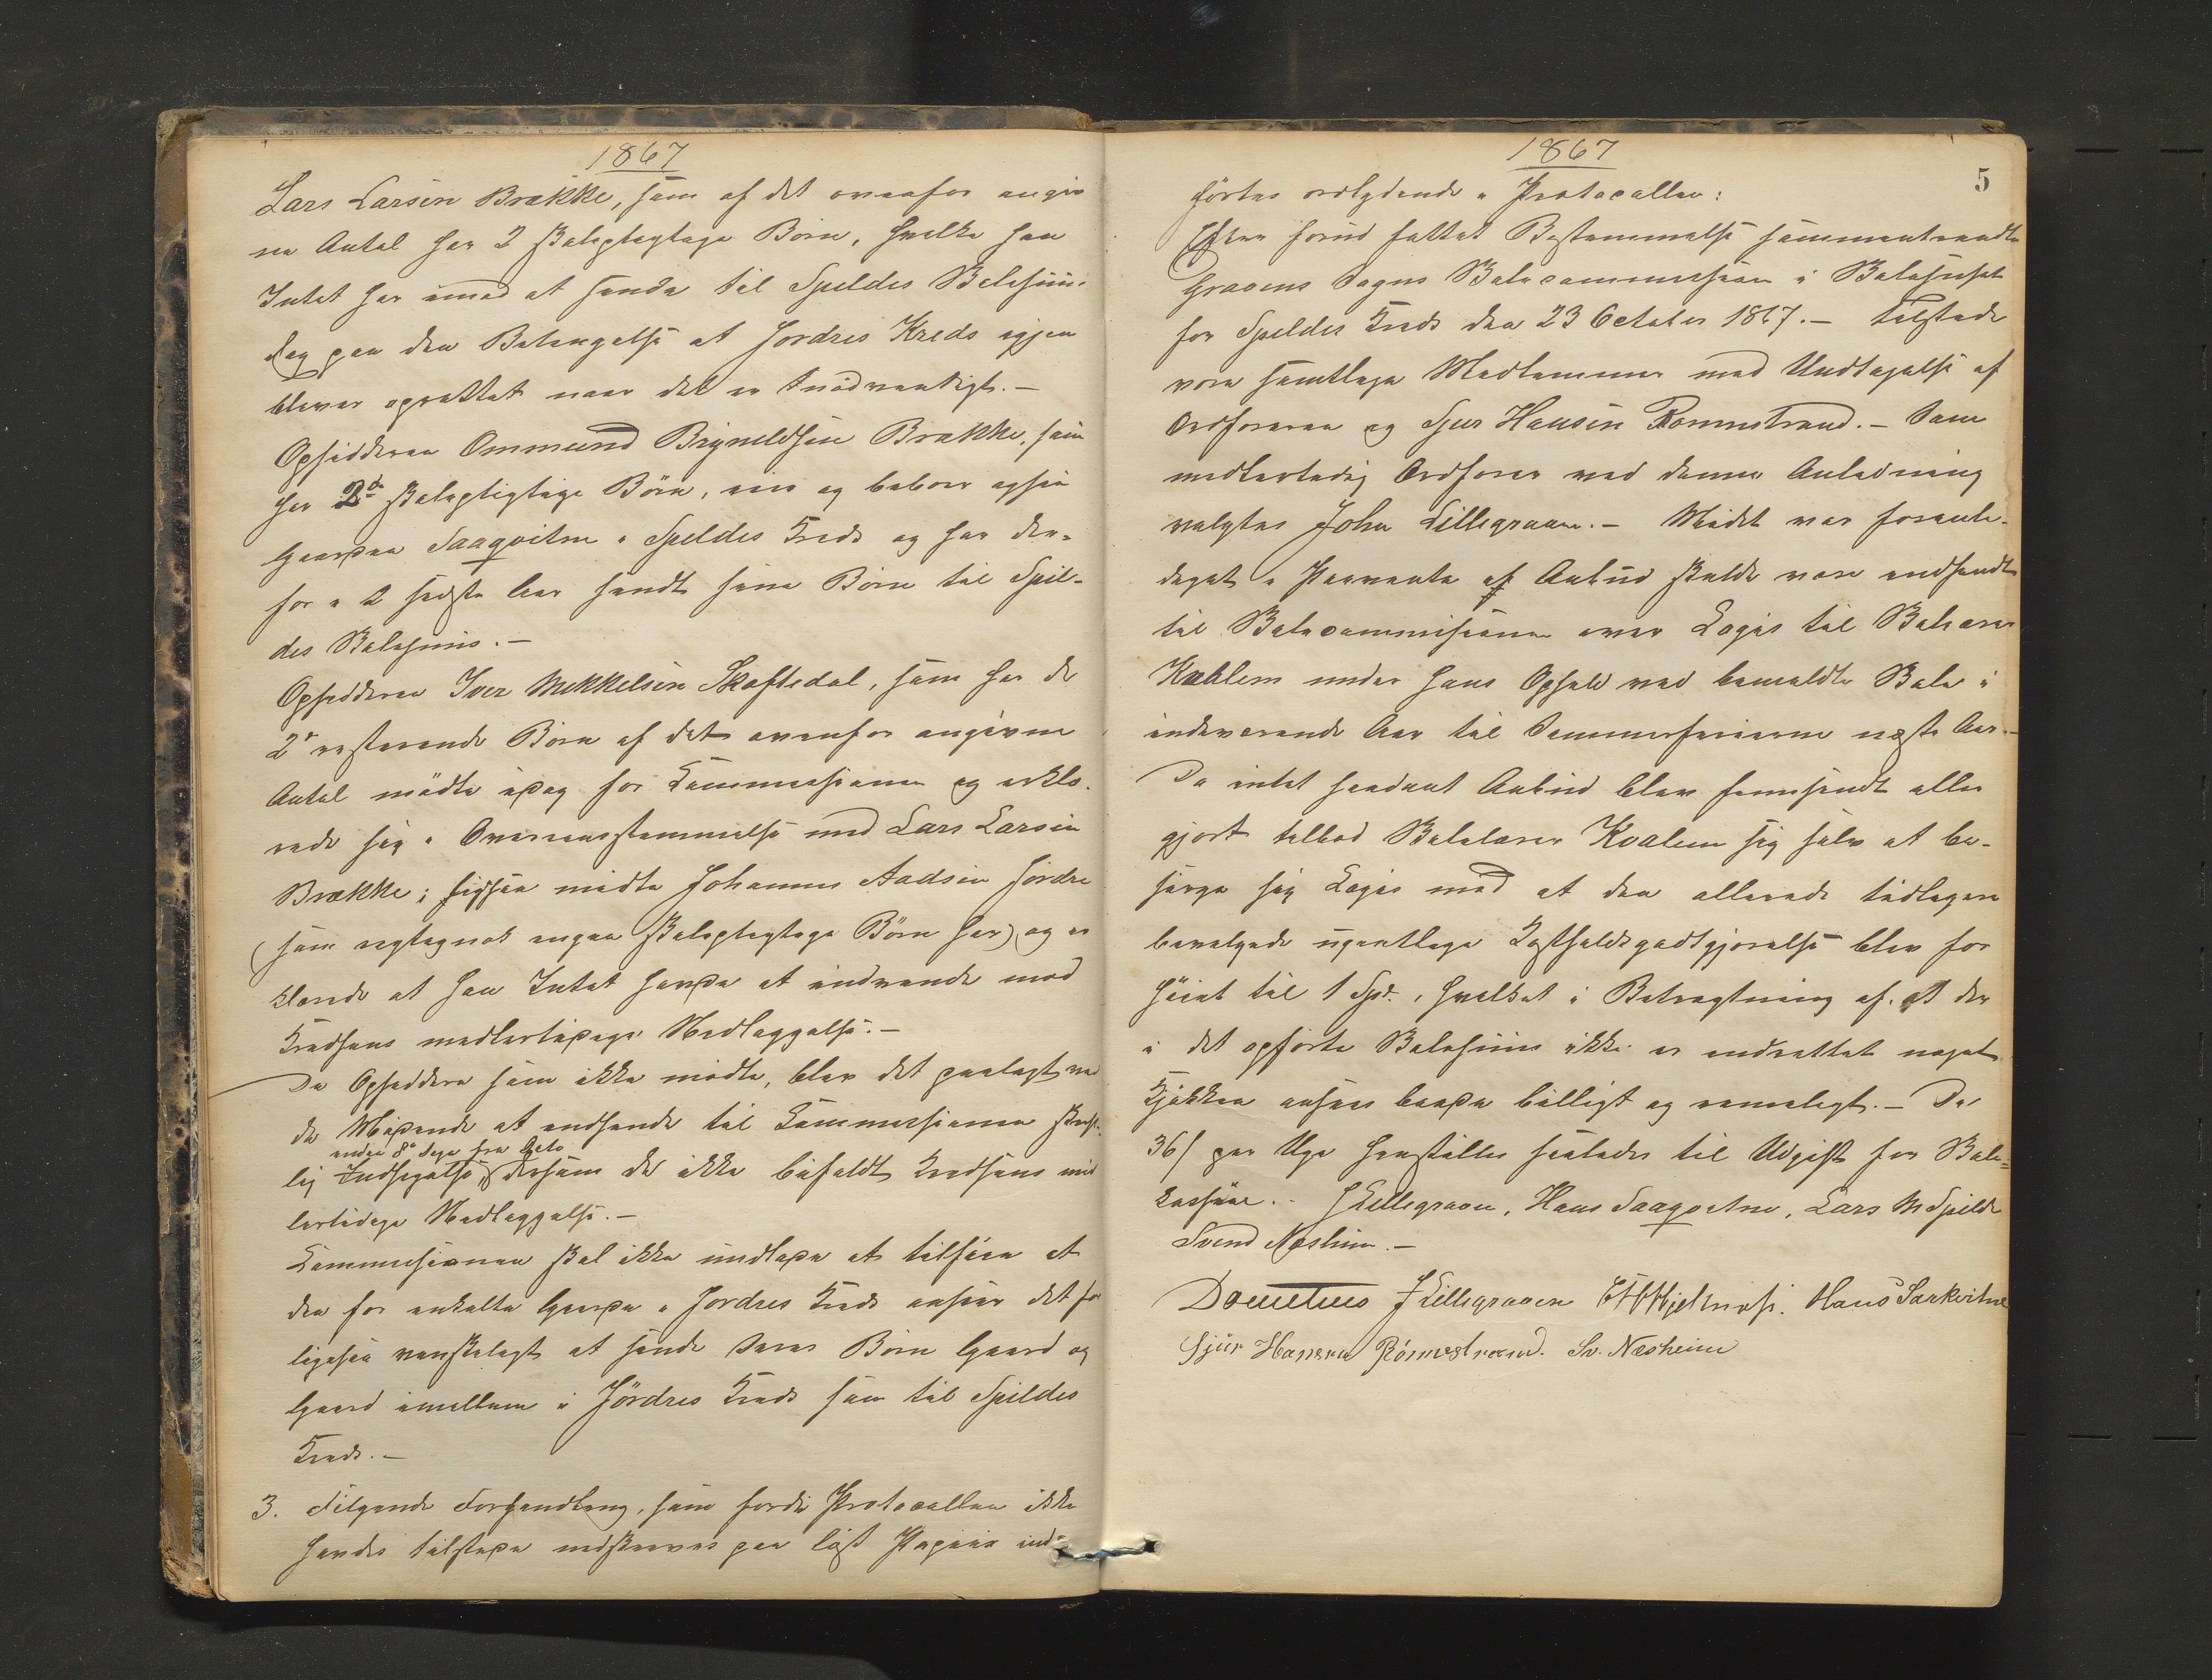 1867
Lars Larsen Brække, som af det ovenfor angiv
ne Antal har 2 skolepligtige Börn, hvilke han
Intet har imod at sende til Spildes Skolehuus
dog paa den Betingelse at Jördres Kreds igjen
bliver oprettet naar det er tnödvendigt. —
Opsidderen Ommund Brynildsen Brække, som
har 2de skolepligtige Börn, eier og beboer ogsaa
Gaarden Saaqvitne i Spildes Kreds og har der-
for i 2 sidste Aar sendt sine Börn til Spil-
des Skolehuus. —
Opsidderen Iver Mikkelsen Skaftedal, som har de
2de resterende Börn af det ovenfor angivne
Antal mödte idag for Commissionen og erklæ-
rede sig i Overensstemmelse med Lars Larsen
Brække; ligesaa mödte Johannes Aadsen Jördre
(som rigtignok ingen skolepligtige Börn har) og er
klærede at han Intet havde at indvende mod
Kredsens midlertidige Nedlæggelse. —
De Opsiddere som ikke mödte, blev det paalagt ved
de Mödende at indsende til Commissionen skrift-
inden 8te Dage fra Dato
lig Indsigelse, dersom de ikke bifaldt Kredsens mid
lertidige Nedlæggelse. —
Commissionen skal ikke undlade at tilföie at
den for enkelte Gaarde i Jördres Kreds anseer det for
ligesaa vanskeligt at sende deres Börn Gaard og
Gaard imellem i Jördres Kreds som til Spildes
Kreds. —
3. Fölgende Forhandling, som fordi Protocollen ikke
havdes tilstede nedskreves paa löst Papiir ind-
1867
5
förtes ordlydende i Protocollen:
Efter forud fattet Bestemmelse sammentraadte
Gravens Sogns Skolecommission i Skolehuset
for Spildes Kreds den 23 October 1867. — Tilstede
vare samtlige Medlemmer med Undtagelse af
Ordföreren og Sjur Hansen Rönnestrand. — Som
midlertidig Ordförer ved denne Anledning
valgtes John Lillegraven. — Mödet var foranle-
diget i Formente af Anbud skulde være indsendt
til Skolecommissionen over Logis til Skolelærer
Kvalem under hans Ophold ved bemeldte Skole i
indeværende Aar til Sommerferierne næste Aar. —
Da intet saadant Anbud blev fremsendt eller
gjort tilbød Skolelærer Kvalem sig selv at be-
sörge sig Logis mod at den allerede tidligere
bevilgede ugentlige Kostholdsgodtgjörelse blev for
höiet til 1 Spd., hvilket i Betragtning af at der
i det opförte Skolehuus ikke er indrettet noget
Kjökken ansees baade billigt og rimeligt. — De
36 s per Uge henstilles saaledes til Udgift for Skole-
kassen. — J Lillegraven, Hans Saaqvitne, Lars M Spilde
Svend Næsheim. —
J Lillegraven Hans Saakvitne
Sjur Hansen Rönnestrand. Sv. Næsheim